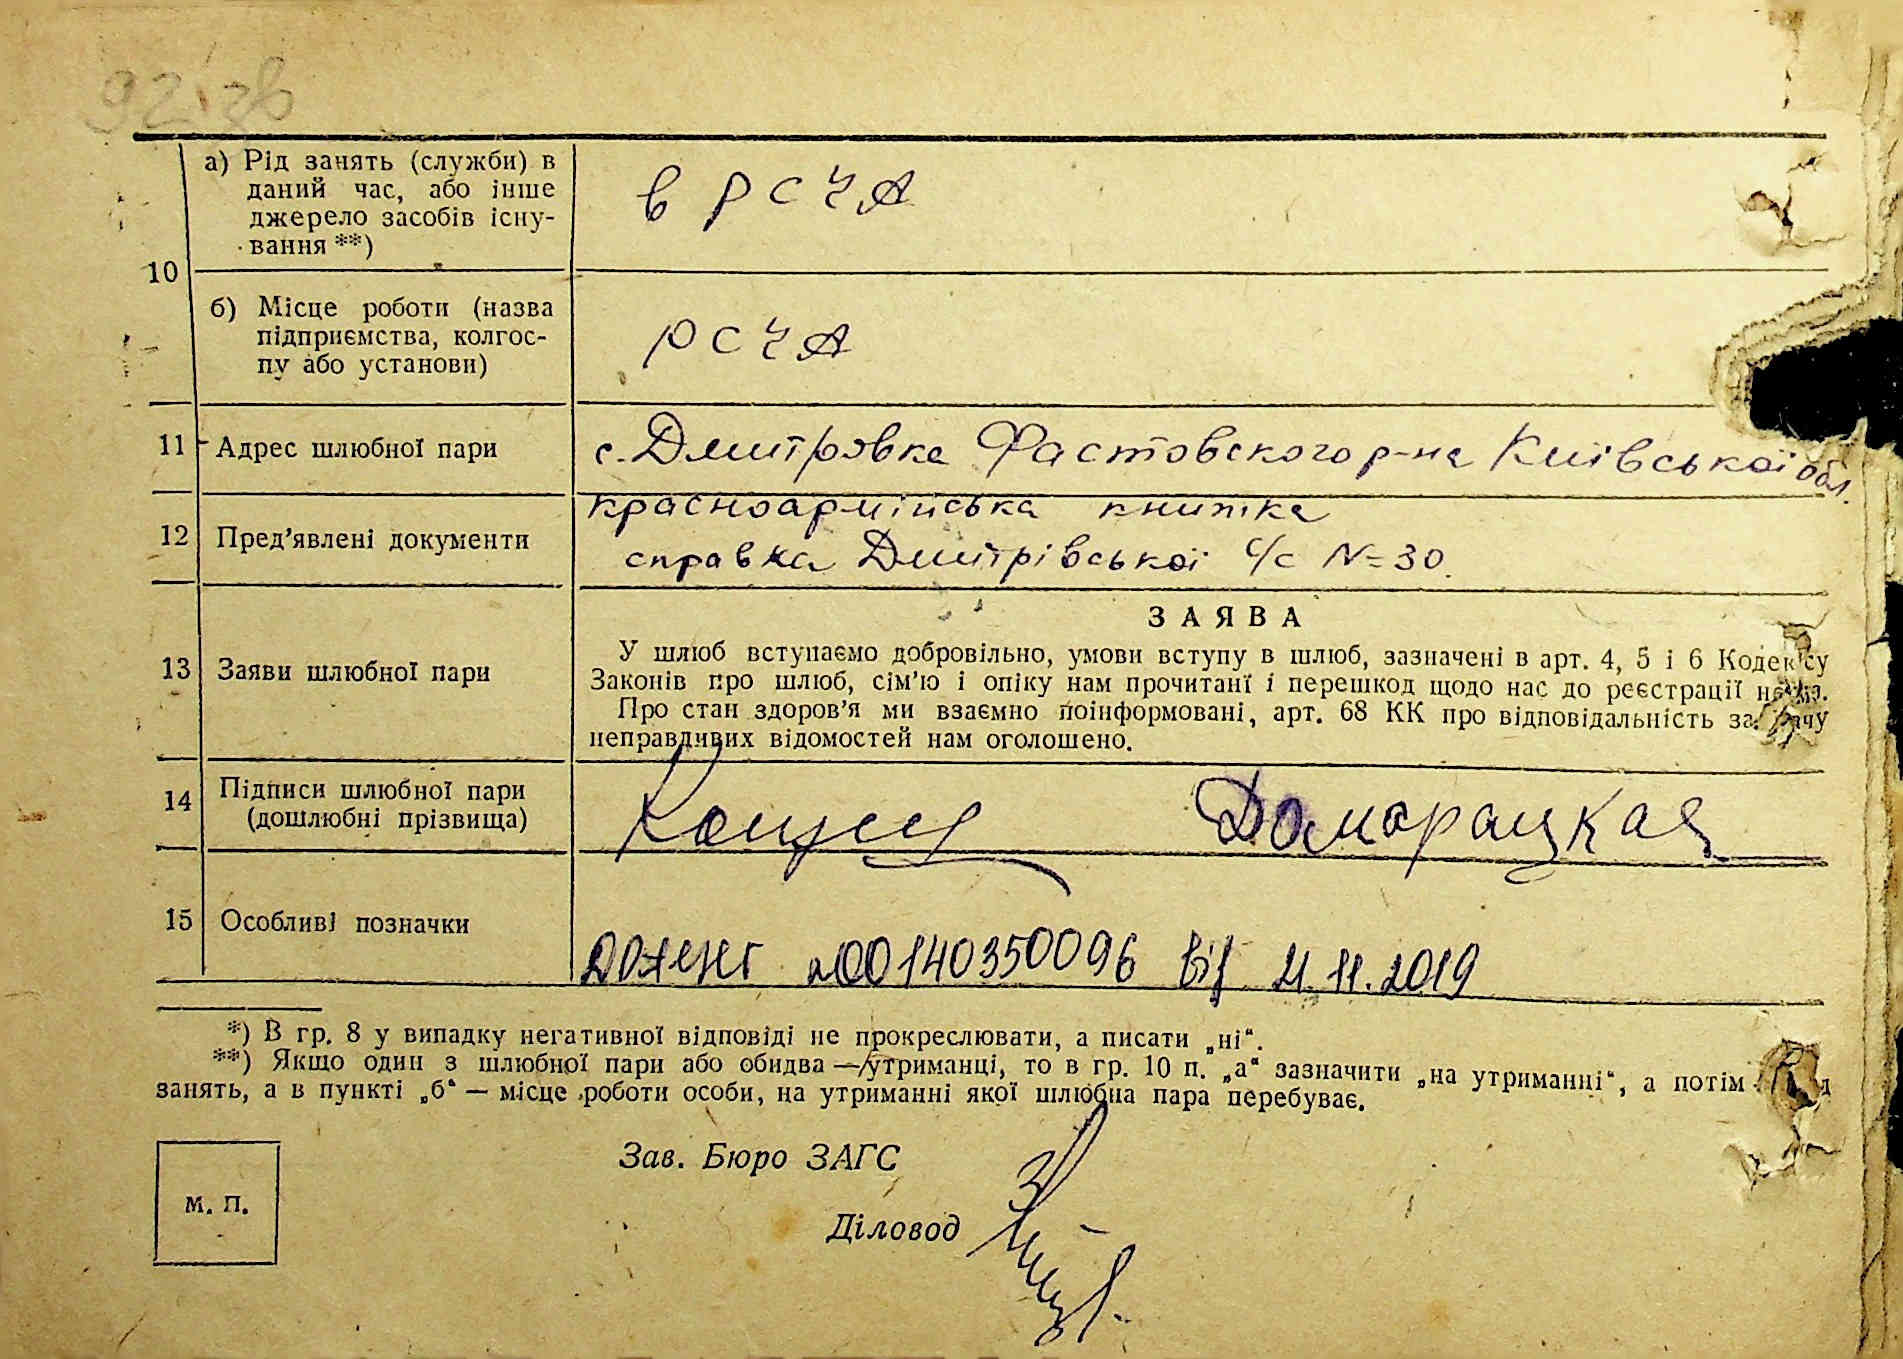 92 зв
а) Рід занять (служби) в
даний час, або інше
джерело засобів існу-
вання **)
в РСЧА
10
б) Місце роботи (назва
підприємства, колгос-
пу або установи)
РСЧА
11 Адрес шлюбної пари
с. Дмитровка Фастовского р-на Київської обл.
12 Пред’явлені документи
красноармійська книжка
справка Дмитрівської с/с N=30.
13 Заяви шлюбної пари
ЗАЯВА
У шлюб вступаємо добровільно, умови вступу в шлюб, зазначені в арт. 4, 5 і 6 Кодексу
Законів про шлюб, сім’ю і опіку нам прочитані і перешкод щодо нас до реєстрації нема.
Про стан здоров’я ми взаємно поінформовані, арт. 68 КК про відповідальність за дачу
неправдивих відомостей нам оголошено.
14 Підписи шлюбної пари
(дошлюбні прізвища)
Домарацкая
15 Особливі позначки
00140350096 від 21.11.2019
*) В гр. 8 у випадку негативної відповіді не прокреслювати, а писати „ні“.
**) Якщо один з шлюбної пари або обидва — утриманці, то в гр. 10 п. „а“ зазначити „на утриманні“, а потім
занять, а в пункті „б“ — місце роботи особи, на утриманні якої шлюбна пара перебуває.
Зав. Бюро ЗАГС
М. П.
Діловод